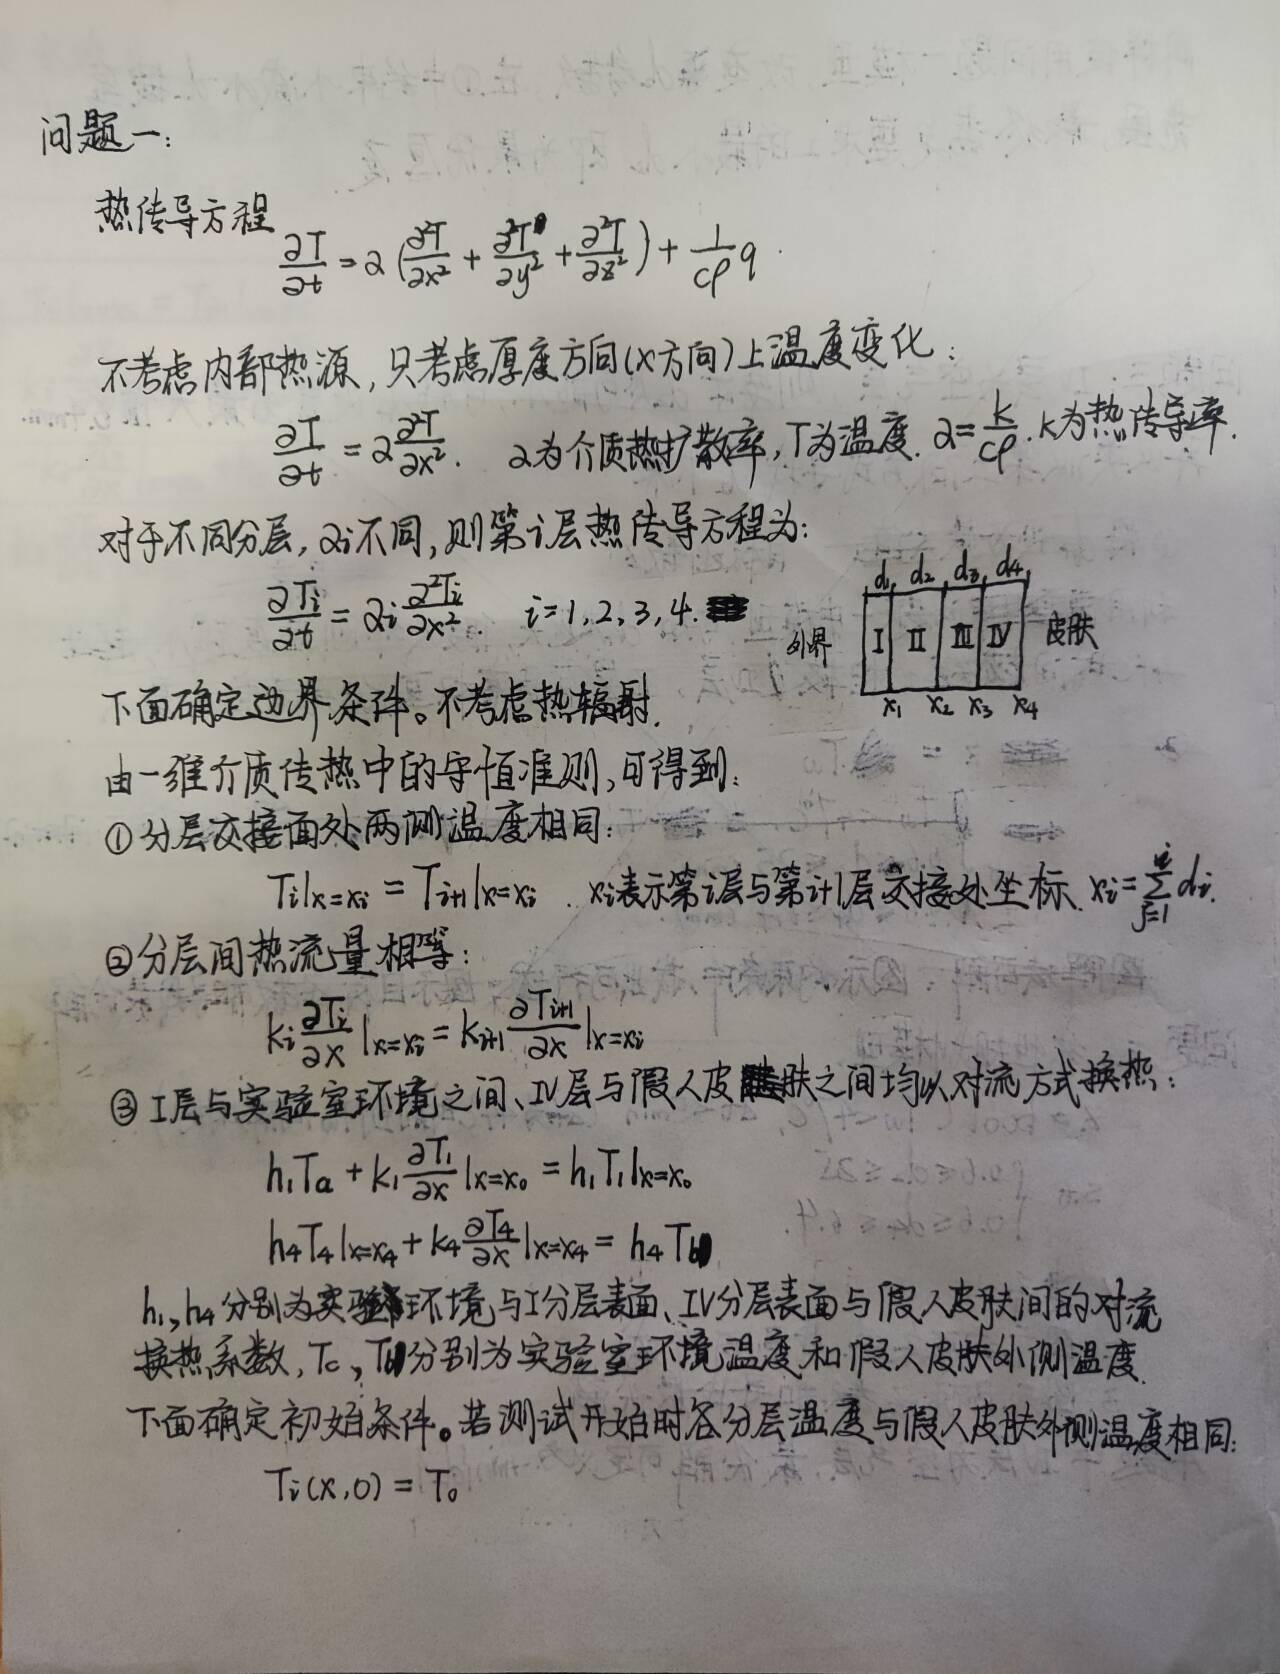 问题一:
热传导方程
∂T/∂t = α(∂²T/∂x² + ∂²T/∂y² + ∂²T/∂z²) + 1/(cρ) q
不考虑内部热源,只考虑厚度方向(x方向)上温度变化:
∂T/∂t = α ∂²T/∂x². α为介质热扩散率,T为温度. α = k/(cρ). k为热传导率.
对于不同分层,αi不同,则第i层热传导方程为:
∂Ti/∂t = αi ∂²Ti/∂x². i=1,2,3,4.
d1 d2 d3 d4
外界 I II III IV 皮肤
x1 x2 x3 x4
下面确定边界条件。不考虑热辐射.
由一维介质传热中的守恒准则,可得到:
①分层交接面处两侧温度相同:
Ti|x=xi = Ti+1|x=xi . xi表示第i层与第i+1层交接处坐标. xi=∑(j=1→i) di.
②分层间热流量相等:
ki ∂Ti/∂x |x=xi = ki+1 ∂Ti+1/∂x |x=xi
③I层与实验室环境之间、IV层与假人皮肤之间均以对流方式换热:
h1Ta + k1 ∂T1/∂x |x=x0 = h1T1|x=x0
h4T4|x=x4 + k4 ∂T4/∂x |x=x4 = h4Tb
h1,h4分别为实验环境与I分层表面、IV分层表面与假人皮肤间的对流
换热系数,Tc,Tb分别为实验室环境温度和假人皮肤外侧温度.
下面确定初始条件。若测试开始时各分层温度与假人皮肤外侧温度相同:
Ti(x,0) = T0